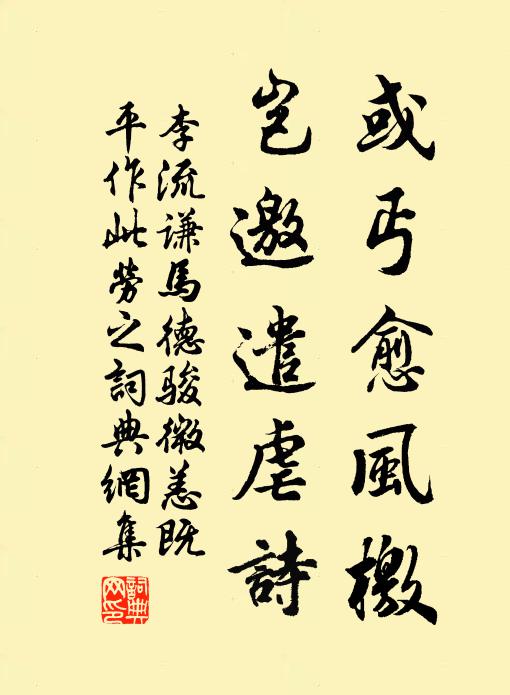 或丐愈風檄
豈邀遣虐詩
李流謙馬德駿微恙既
平作此勞之詞典網集
詞典网印